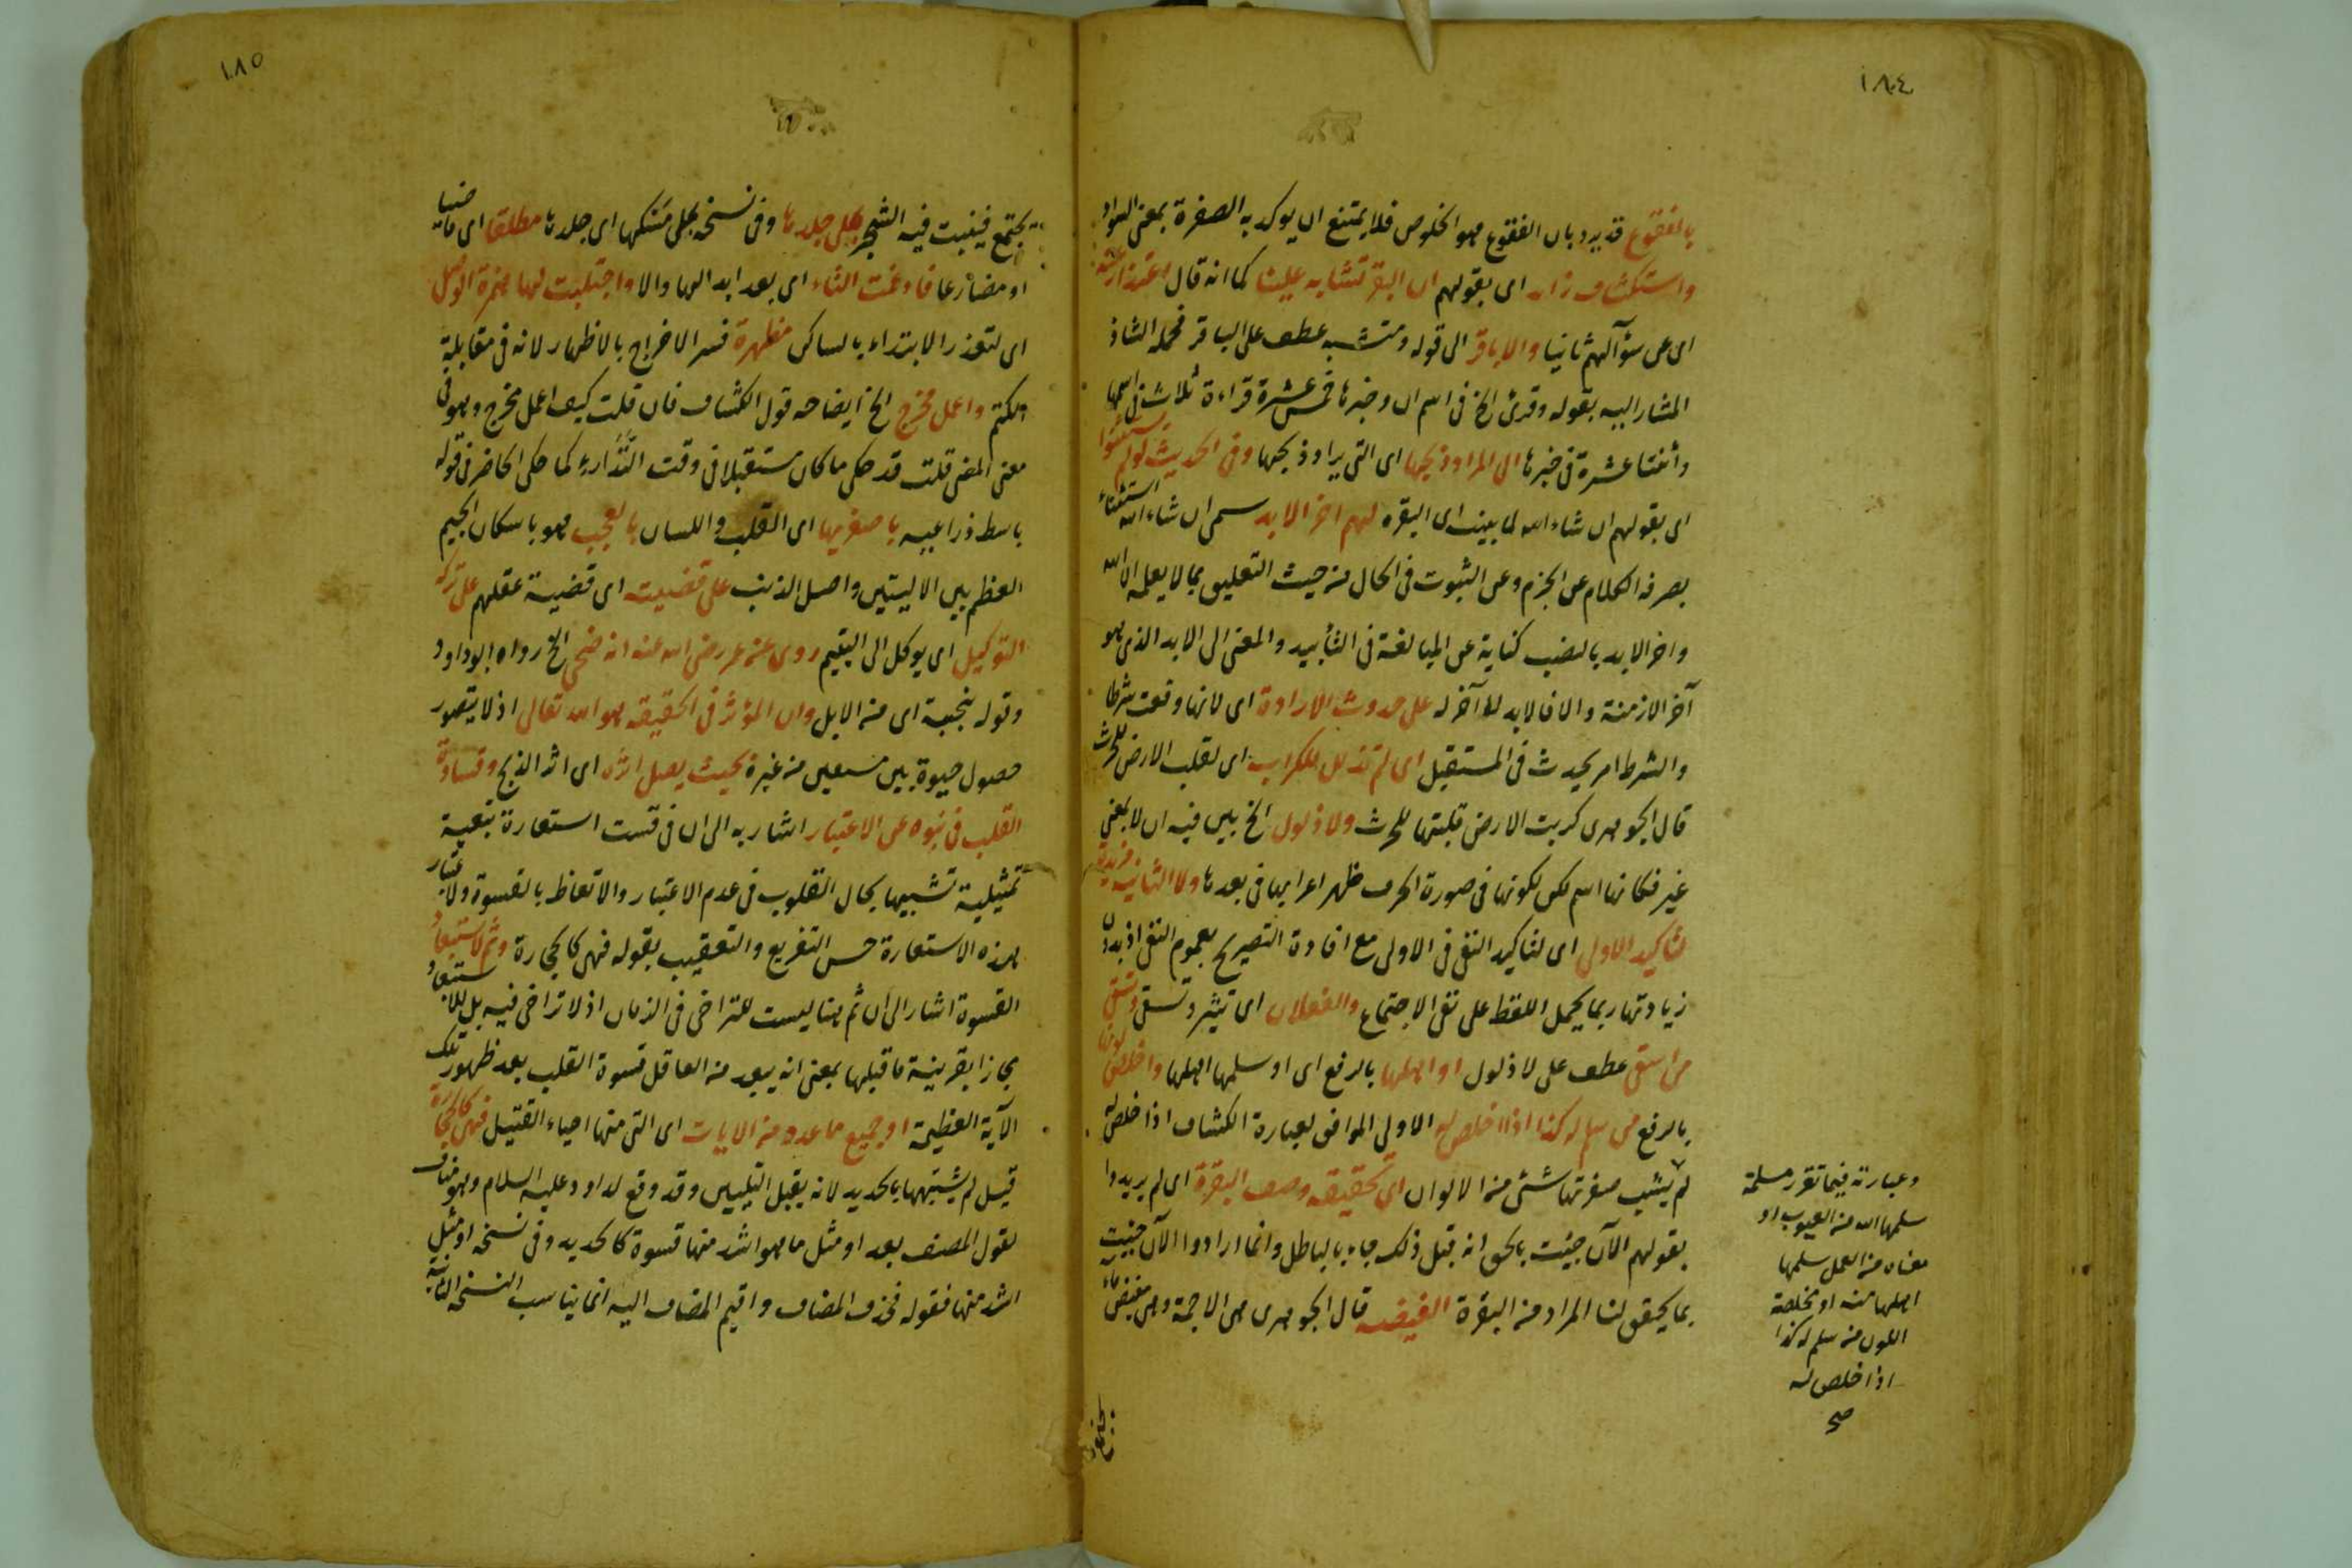 ١٨٤
بالفقوع قد يرد بان الفقوع هو الخلوص فلا يمتنع ان يوكد به الصفرة بمعنى السواد
واستكشاف زائد اى بقولهم ان البقر تشابه علينا كما انه قال اعتذارا عنه
اى عن سؤآلهم ثانيا والاباقر الى قوله ومتشبه عطف على الباقر فجملة الشاذ
المشار اليه بقوله وقرئ الخ فى اسم ان وخبرها خمس عشرة قراءة ثلاث فى اسمها
وأثنتا عشرة فى خبرها الى المراد ذبحها اى التى يراد ذبحها وفى الحديث لو لم يستثنوا
اى بقولهم ان شاء الله لما بينت اى البقره لهم اخر الابد سمى ان شاء الله استثناءً
بصرفه الكلام عن الجزم وعن الثبوت فى الحال من حيث التعليق بما لا يعلمه الا الله
واخر الابد بالنصب كناية عن المبالغة فى التأبيد والمعنى الى الابد الذى هو
آخر الازمنة والا فالابد لا آخر له على حدوث الارادة اى لانها وقعت شرطا
والشرط امر يحدث فى المستقبل اى لم تذلل للكراب اى لقلب الارض للحرث
قال الجوهرى كربت الارض قلبتها للحرث ولا ذلول الخ بين فيه ان لا بمعنى
غير فكانها اسم لكن لكونها فى صورة الحرف ظهر اعرابها فى بعدها ولا الثانية مزيدة
لتأكيد الاولى اى لتاكيد النفى فى الاولى مع افادة التصريح بعموم النفى اذ بدون
زيادتها ربما يحمل اللفظ على نفى الاجتماع والفعلان اى تثير وتسقى وتسقى
من اسقى عطف على لا ذلول او اهلها بالرفع اى او سلمها اهلها واخلص لونها
بالرفع من سلم له كذا اذا اخلص له الاولى الموافق لعبارة الكشاف اذا خلص له
لم يشب صفرتها شئ من الالوان اى تحقيقه وصف البقرة اى لم يريدوا
بقولهم الآن جئت بالحق انه قبل ذلك جاء بالباطل وانما ارادوا الآن جئت
بما يحقق لنا المراد من البقرة الغيضه قال الجوهرى هى الاجمة وهى مغيض ماء
يجتمع
وعبارته فيما تقرر مسلمة
سلمها الله من العيوب او
معفاة من العمل سلمها
اهلها منه او مخلصة
اللون من سلم له كذا
اذا خلص له
صح
١٨٥
يجتمع فينبت فيه الشجر بكل جلدها وفى نسخه بملى مسكها اى جلدها مطلقا اى ماضيا
او مضارعا فادغمت التاء اى بعد ابدالها دالا واجتلبت لها همزة الوصل
اى لتعذر الابتداء بالساكن مظهرة فسر الاخراج بالاظهار لانه فى مقابلة
الكتم واعمل مخرج الخ ايضاحه قول الكشاف فان قلت كيف اعمل مخرج وهو فى
معنى المضى قلت قد حكى ما كان مستقبلا فى وقت التدارء كما حكى الحاضر فى قوله
باسط ذراعيه باصغريها اى القلب واللسان بالعجب هو باسكان الجيم
العظم بين الاليتين واصل الذنب على قضيته اى قضية عقلهم على تركه
التوكيل اى يوكل الى اليتيم روى عن عمر رضى الله عنه انه ضحى الخ رواه ابو داود
وقوله بنجيبة اى من الابل وان المؤثر فى الحقيقه هو الله تعالى اذ لا يتصور
حصول حيوة بين مسعين من غيره بحيث يصل اثره اى اثر الذبح وقساوة
القلب فى نبوه عن الاعتبار اشار به الى ان فى قست استعارة تبعية
تمثيلية تشبيها بحال القلوب فى عدم الاعتبار والاتعاظ بالقسوة ولاعتبار
هذه الاستعارة حسن التفريع والتعقيب بقوله فهى كالحجارة وثم لاستبعاد
القسوة اشار الى ان ثم هنا ليست للتراخى فى الزمان اذ لا تراخى فيه بل للاستبعاد
مجازا بقرينة ما قبلها بمعنى انه يبعد من العاقل قسوة القلب بعد ظهور تلك
الآية العظيمة او جميع ما عدد من الايات اى التى منها احياء القتيل فهى كالحجارة
قيل لم يشبهها بالحديد لانه يقبل التليين وقد وقع لداود عليه السلام وهو مناف
لقول المصنف بعد او مثل ما هو اشد منها قسوة كالحديد وفى نسخه او مثل
اشد منها فقوله فحذف المضاف واقيم المضاف اليه انما يناسب النسخه الثانية